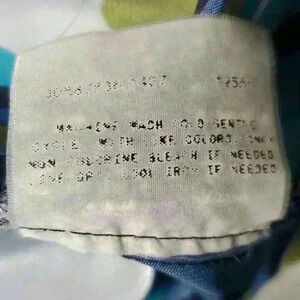 MACHINE WASH COLD GENTLE
CYCLE WITH LIKE COLORS. ONLY
NON CHLORINE BLEACH IF NEEDED
LINE DRY. COOL IRON IF NEEDED